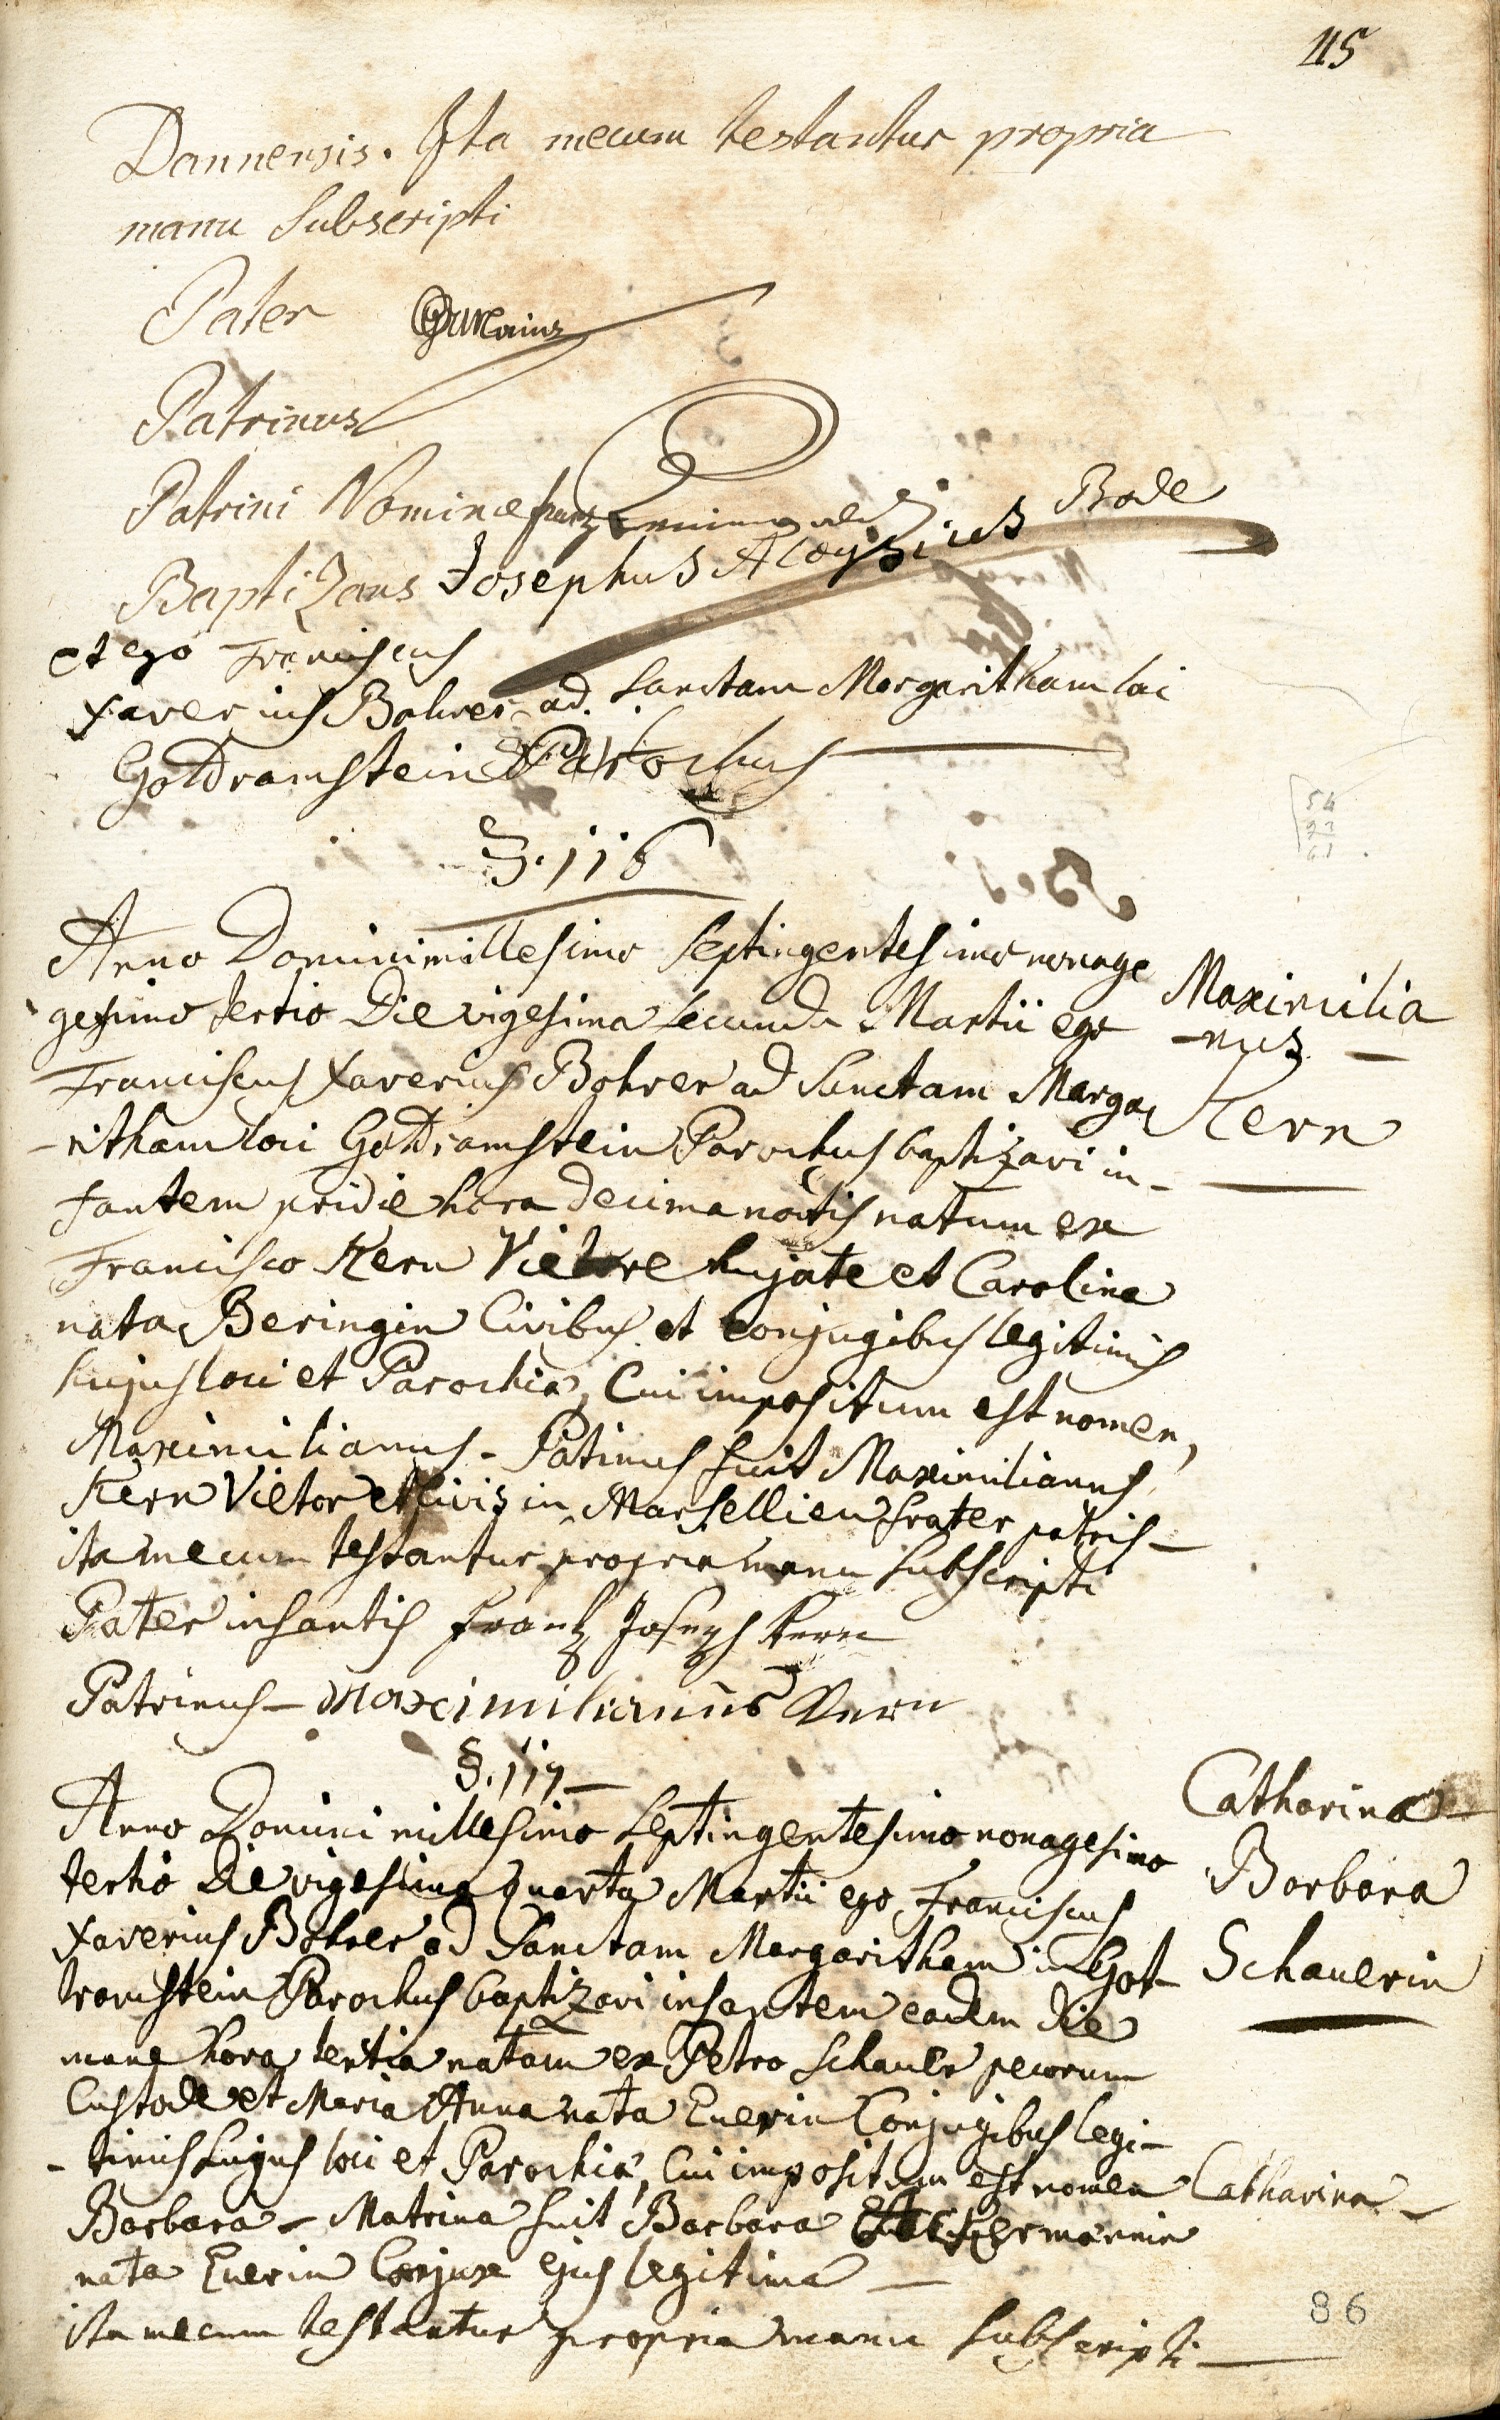 115
Dannensis. Ita mecum testantur propria
manu Subscripti
Pater
Patrinus
Patrini Nomine franz
Baptizans Josephus Aloysius Bode
et ego Franciscus
Xaverius Bohrer ad Sanctam Margaritham loci
Goldramstein Parochus
§. 116
Anno Domini millesimo Septingentesimo nonage
gesimo tertio Die vigesima Secunda Martii ego
Franciscus Xaverius Bohrer ad Sanctam Marga
-ritham loci Goldramstein Parochus baptizavi in-
fantem pridie hora decima noctis natum ex
Francisco Kern Vietore hujate et Carolina
nata Beringin Civibus et conjugibus legitimis
hujus loci et Parochiæ, Cui impositum est nomen,
Maximilianus - Patinus fuit Maximilianus
Kern Vietor et civis in Marsellien frater patris-
ita mecum testantur propria manu Subscripti
Pater infantis Frantz Joseph Kern
Patrinus - Maximilianus Kern
Maximilia
-nus -
Kern
§. 117
Anno Domini millesimo Septingentesimo nonagesimo
tertio Die vigesima quarta Martii ego Franciscus
Xaverius Bohrer ad Sanctam Margaritham in Got-
tramstein Parochus baptizavi infantem eadem die
mane hora tertia natam ex Petro Schauer pecorum
Custode et Maria Anna nata Euerin Conjugibus legi-
-timis hujus loci et Parochiæ, Cui impositum est nomen Catharina
Barbara - Matrina fuit Barbara
nata Euerin Conjux ejus legitima
ita mecum testantur propria manu Subscripti
Catharina
Barbara
Schauerin
86